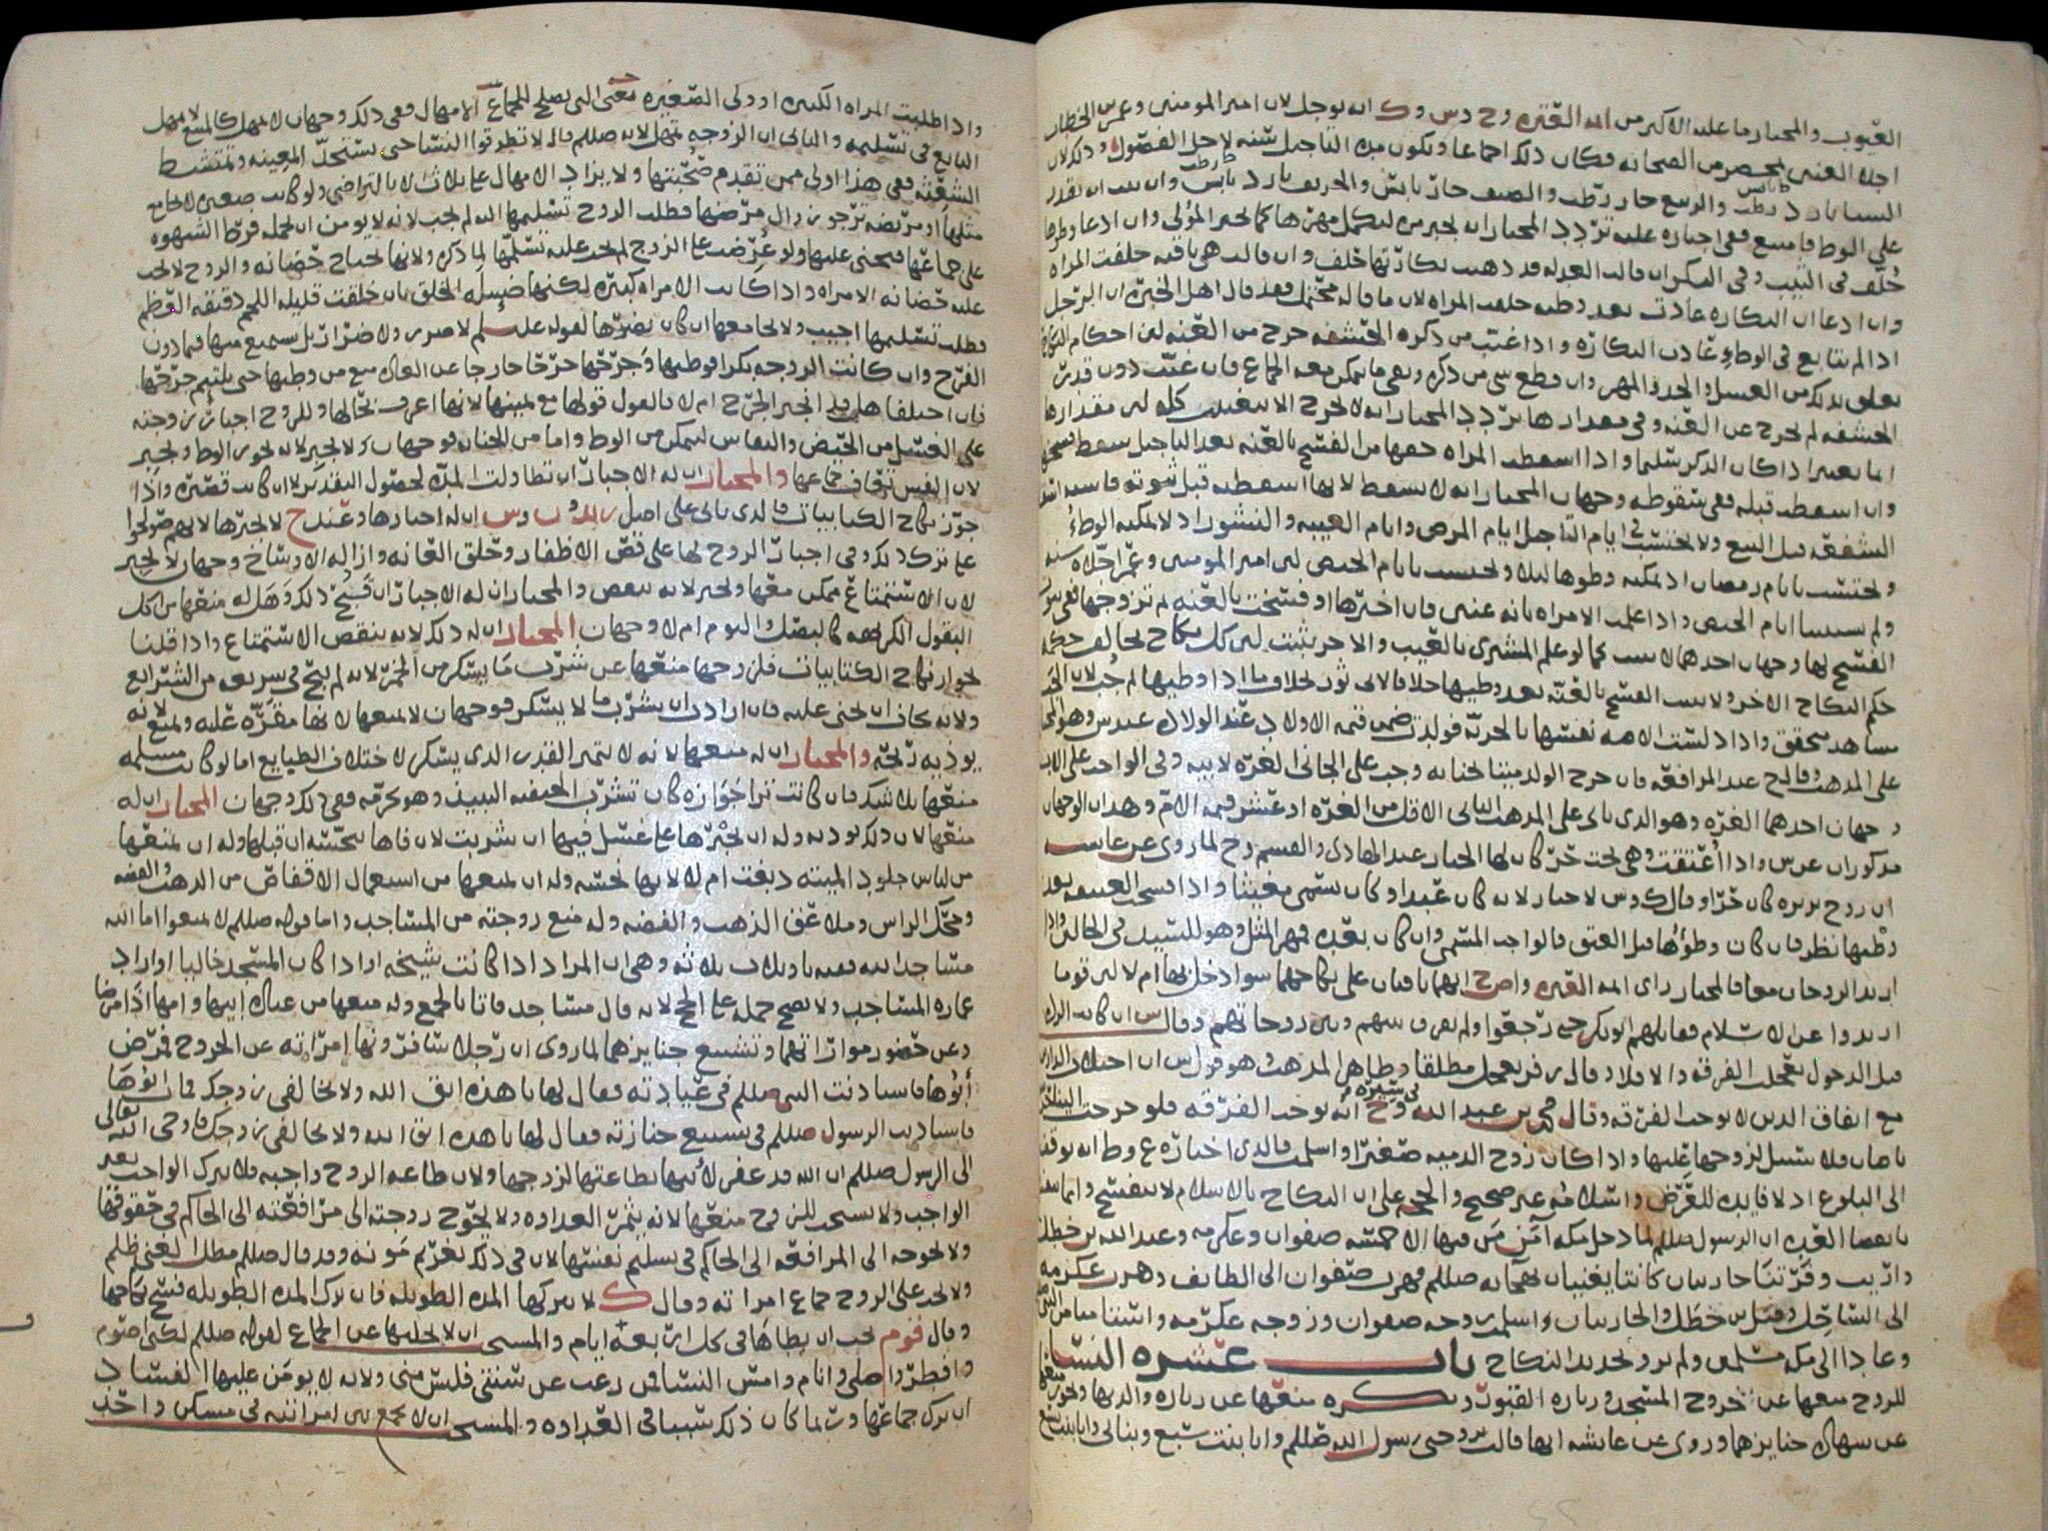 العيوب والمختار ما عليه الاكثر من ائمه العتره وح وس وك انه يوجل لان امير المومنين وعمر بن الخطاب
اجلا العنين بمحضر من الصحابه فكان ذلك اجماعا وتكون مده التاجيل سنه لاجل الفصول وذلك لان
الشتا بارد رطب والربيع حار رطب والصيف حار يابس والخريف بارد يابس وان ثبت انه يقدر
على الوطء فامتنع ففي اجباره عليه تردد المختار انه يجبر مره ليكمل مهرها كما يجبر المولي وان ادعا وطئها
حلف في الثيب وفي البكر ان قالت العدله قد ذهبت بكارتها حلف وان قالت هي باقيه حلفت المراه
وان ادعا ان البكاره عادت بعد وطيه حلفت المراه لان ما قاله محتمل فقد قال اهل الخبره ان الرجل
اذا لم يتابع في الوطء عادت البكاره واذا غيب من ذكره الحشفه خرج من العنه لان احكام النكاح
تعلق بذلك من الغسل والحد والمهر وان قطع شي من ذكره وبقي ما يمكن معه الجماع فان غيب دون قدر
الحشفه لم يخرج عن العنه وفي مقدارها تردد المختار انه لا يخرج الا بتغييب كله لان مقدارها
انما يعتبر اذا كان الذكر سليما واذا اسقطت المراه حقها من الفسخ بالعنه بعد التاجيل سقط
وان اسقطته قبله ففي سقوطه وجهان المختار انه لا يسقط لانها اسقطته قبل ثبوته فاشبه اسقاط
الشفعه قبل البيع ولا يحتسب في ايام التاجيل ايام المرض وايام الغيبه والنشوز اذ لا يمكنه الوطء
ويحتسب بايام رمضان اذ يمكنه وطوها ليلا ويحتسب بايام الحيض لان امير المومنين وعمر اجلاه سنه
ولم يستثنيا ايام الحيض واذا علمت الامراه بانه عنين فان اخبرها او فسخت بالعنه ثم تزوجها ففي ثبوت
الفسخ لها وجهان احدهما لا يثبت كما لو علم المشتري بالعيب والاخر يثبت لان كل نكاح يخالف حكمه
حكم النكاح الاخر ولا يثبت الفسخ بالعنه بعد وطيها خلافا لابي ثور بخلاف ما اذا وطيها ثم جب لان الجب
مشاهد متحقق واذا دلست الامه نفسها بالحريه فولدت ضمن قيمه الاولاد عند الولاده عند س وهو المختار
على المذهب وقال ح عند المرافعه فان خرج الولد ميتا بجنايه وجب على الجاني الغره لابيه وفي الواجب على الاب
وجهان احدهما الغره وهو الذي ياتي على المذهب الثاني الاقل من الغره او عشر قيمه الام وهذان الوجهان
مذكوران عن س واذا اعتقت وهي تحت حر كان لها الخيار عند الهادي والقسم وح لما روي عن عايشه
ان زوج بريره كان حرا وقال ك وس لا خيار لانه كان عبدا وكان يسمى مغيثا واذا فسخت العتيقه بعد
وطيها نظر فان كان وطؤها قبل العتق فالواجب المسمى وان كان بعده فمهر المثل وهو للسيد في الحالين واذا
ارتد الزوجان معا فالمختار راي ايمه العتره واص ح انهما باقيان على نكاحهما سوا دخل بها ام لا لان قوما
ارتدوا عن الاسلام فقاتلهم ابو بكر حتى رجعوا ولم يفرق بينهم وبين زوجاتهم وقال س ان كانت الرده
قبل الدخول تعجلت الفرقه والا فلا وقال زفر تعجل مطلقا وظاهر المذهب وهو قول س ان اختلاف الدارين
مع اتفاق الدين لا يوجب الفرقه وقال محمد بن عبد الله في سيره وح انه يوجب الفرقه فلو خرجت الينا حربيه
بامان فلا سبيل لزوجها عليها واذا كان زوج الذميه صغيرا واسلمت فالذي اختاره ع وط انه يوقف
الى البلوغ اذ لا فايده للعرض واسلامه غير صحيح والحجه على ان النكاح بالاسلام لا ينفسخ وانما ينفسخ
بانقضا العده ان الرسول صلعم لما دخل مكه امن من فيها الا خمسه صفوان وعكرمه وعبد الله بن خطل
واريب وقرتنا جاريتان كانتا يغنيان بهجائه صلعم فهرب صفوان الى الطايف وهرب عكرمه
الى الساحل وقتل بن خطل والجاريتان واسلمت زوجه صفوان وزوجه عكرمه واستامنتا من النبي
وعادا الى مكه مسلمين ولم يرو تجديد النكاح باب عشره النسا
للزوج منعها عن خروج المسجد وزياره القبور ويكره منعها عن زياره والديها ويجوز منعها
عن شهاده جنايزهما وروي عن عايشه انها قالت تزوجني رسول الله صللم وانا بنت سبع وبنا بي وانا بنت تسع
واذا طلبت المراه الكبيره او ولي الصغيره يعني التي يصلح للجماع الامهال ففي ذلك وجهان لا تمهل كالمبيع لا يمهل
البايع في تسليمه والثاني ان الزوجه تمهل لانه صللم قال لا تطرقوا النسا حتى تستحد المغيبه وتمتشط
الشعثه ففي هذا اولى ممن تقدم صحبتها ولا يزاد الامهال على ثلاث الا بالتراضي ولو كانت صغيره لا يجامع
مثلها او مريضه ترجو زوال مرضها فطلب الزوج تسليمها اليه لم يجب لانه لا يومن ان يحمله فرط الشهوه
على جماعها فيجني عليها ولو عرضت على الزوج لم يجب عليه تسلمها لما ذكره ولانها تحتاج حضانه والزوج لا يجب
عليه حضانه الامراه واذا كانت الامراه كبيره لكنها ضييله الخلق بان خلقت قليله اللحم دقيقه العظم
فطلب تسليمها اجيب ولا يجامعها ان كان يضرها لقوله عليلم لا ضرر ولا ضرار بل يستمتع منها فيما دون
الفرج وان كانت الزوجه بكرا فوطيها وجرحها جرحا خارجا عن العاده منع من وطيها حتى يلتيم جرحها
فان اختلفا هل التحم الجرح ام لا فالقول قولها مع يمينها لانها اعرف بحالها وللزوج اجبار زوجته
على الغسل من الحيض والنفاس ليتمكن من الوطء واما من الجنابه فوجهان لا تجبر لانه يجوز الوطء وتجبر
لان النفس تعاف جماعها والمختار ان له الاجبار ان تطاولت المده لحصول التقذير لا ان كانت قصيره واذا
جوز نكاح الكتابيات فالذي ياتي على اصل زيد و ب وس ان له اجبارها وعند ح لا يجبرها لانهم صولحوا
على ترك ذلك وفي اجبار الزوج لها على قص الاظفار وحلق العانه وازاله الاوساخ وجهان لا يجبر
لان الاستمتاع ممكن معها ويجبر لانه ينقص والمختار ان له الاجبار ان قبح ذلك وهل له منعها من اكل
البقول الكريهه كالبصل والثوم ام لا وجهان المختار ان له ذلك لانه ينقص الاستمتاع واذا قلنا
بجواز نكاح الكتابيات فلزوجها منعها عن شرب ما يسكر من الخمر لانه لم يبح في شريعه من الشرايع
ولانه يخاف ان يجني عليه فان ارادت ان تشرب ما لا يسكر فوجهان لا يمنعها لانها مقره عليه ويمنع لانه
يوذيه ريحه والمختار ان له منعها لانه لا يتميز القدر الذي يسكر لاختلاف الطبايع اما لو كانت مسلمه
منعها بلا شك فان كانت ترا جوازه كان تشرب الحنفيه النبيذ وهو يحرمه ففي ذلك وجهان المختار ان له
منعها لان ذلك يوذيه وله ان يجبرها على غسل فيها ان شربت لان فاها ينجسه ان قبلها وله ان يمنعها
من لباس جلود الميته دبغت ام لا لانها نجسه وله ان يمنعها من استعمال الاقفاص من الذهب والفضه
ومحك الراس وملاعق الذهب والفضه وله منع زوجته من المساجد واما قوله صللم لا تمنعوا اما الله
مساجد الله ففيه تاويلات ثلاثه وهي ان المراد اذا كانت شيخه او اذا كان المسجد خاليا او اراد
عماره المساجد ولا يصح حمله على الحج لانه قال مساجد فاتا بالجمع وله منعها من عياده ابيها وامها اذا مرضا
وعن حضور مواراتهما وتشييع جنايزهما لما روي ان رجلا سافر ونها امراته عن الخروج فمرض
ابوها فاستاذنت النبي صللم في عيادته فقال لها يا هذه اتق الله ولا تخالفي زوجك فمات ابوها
فاستاذنت الرسول صللم في تشييع جنازته فقال لها يا هذه اتق الله ولا تخالفي زوجك فاوحى الله تعالى
الى الرسول صللم ان الله قد غفر لابيها بطاعتها لزوجها ولان طاعه الزوج واجبه فلا يترك الواجب بغير
الواجب ولا يستحب للزوج منعها لانه يثمر العداوه ولا يحوج زوجته الى مرافعته الى الحاكم في حقوقها
ولا تحوجه الى المرافعه الى الحاكم في تسليم نفسها لان في ذلك تغريم مونه وقد قال صللم مطل الغني ظلم
ولا يجب على الزوج جماع امراته وقال ك لا يتركها المده الطويله فان ترك المده الطويله فسخ نكاحها
وقال قوم يجب ان يطاها في كل اربعه ايام والمستحب ان لا يخليها عن الجماع لقوله صللم لكني اصوم
وافطر واصلي وانام وامس النسا فمن رغب عن سنتي فليس مني ولانه لا يومن عليها الفساد
ان ترك جماعها وربما كان ذلك سببا في العداوه والمستحب ان لا يجمع بين امراتيه في مسكن واحد